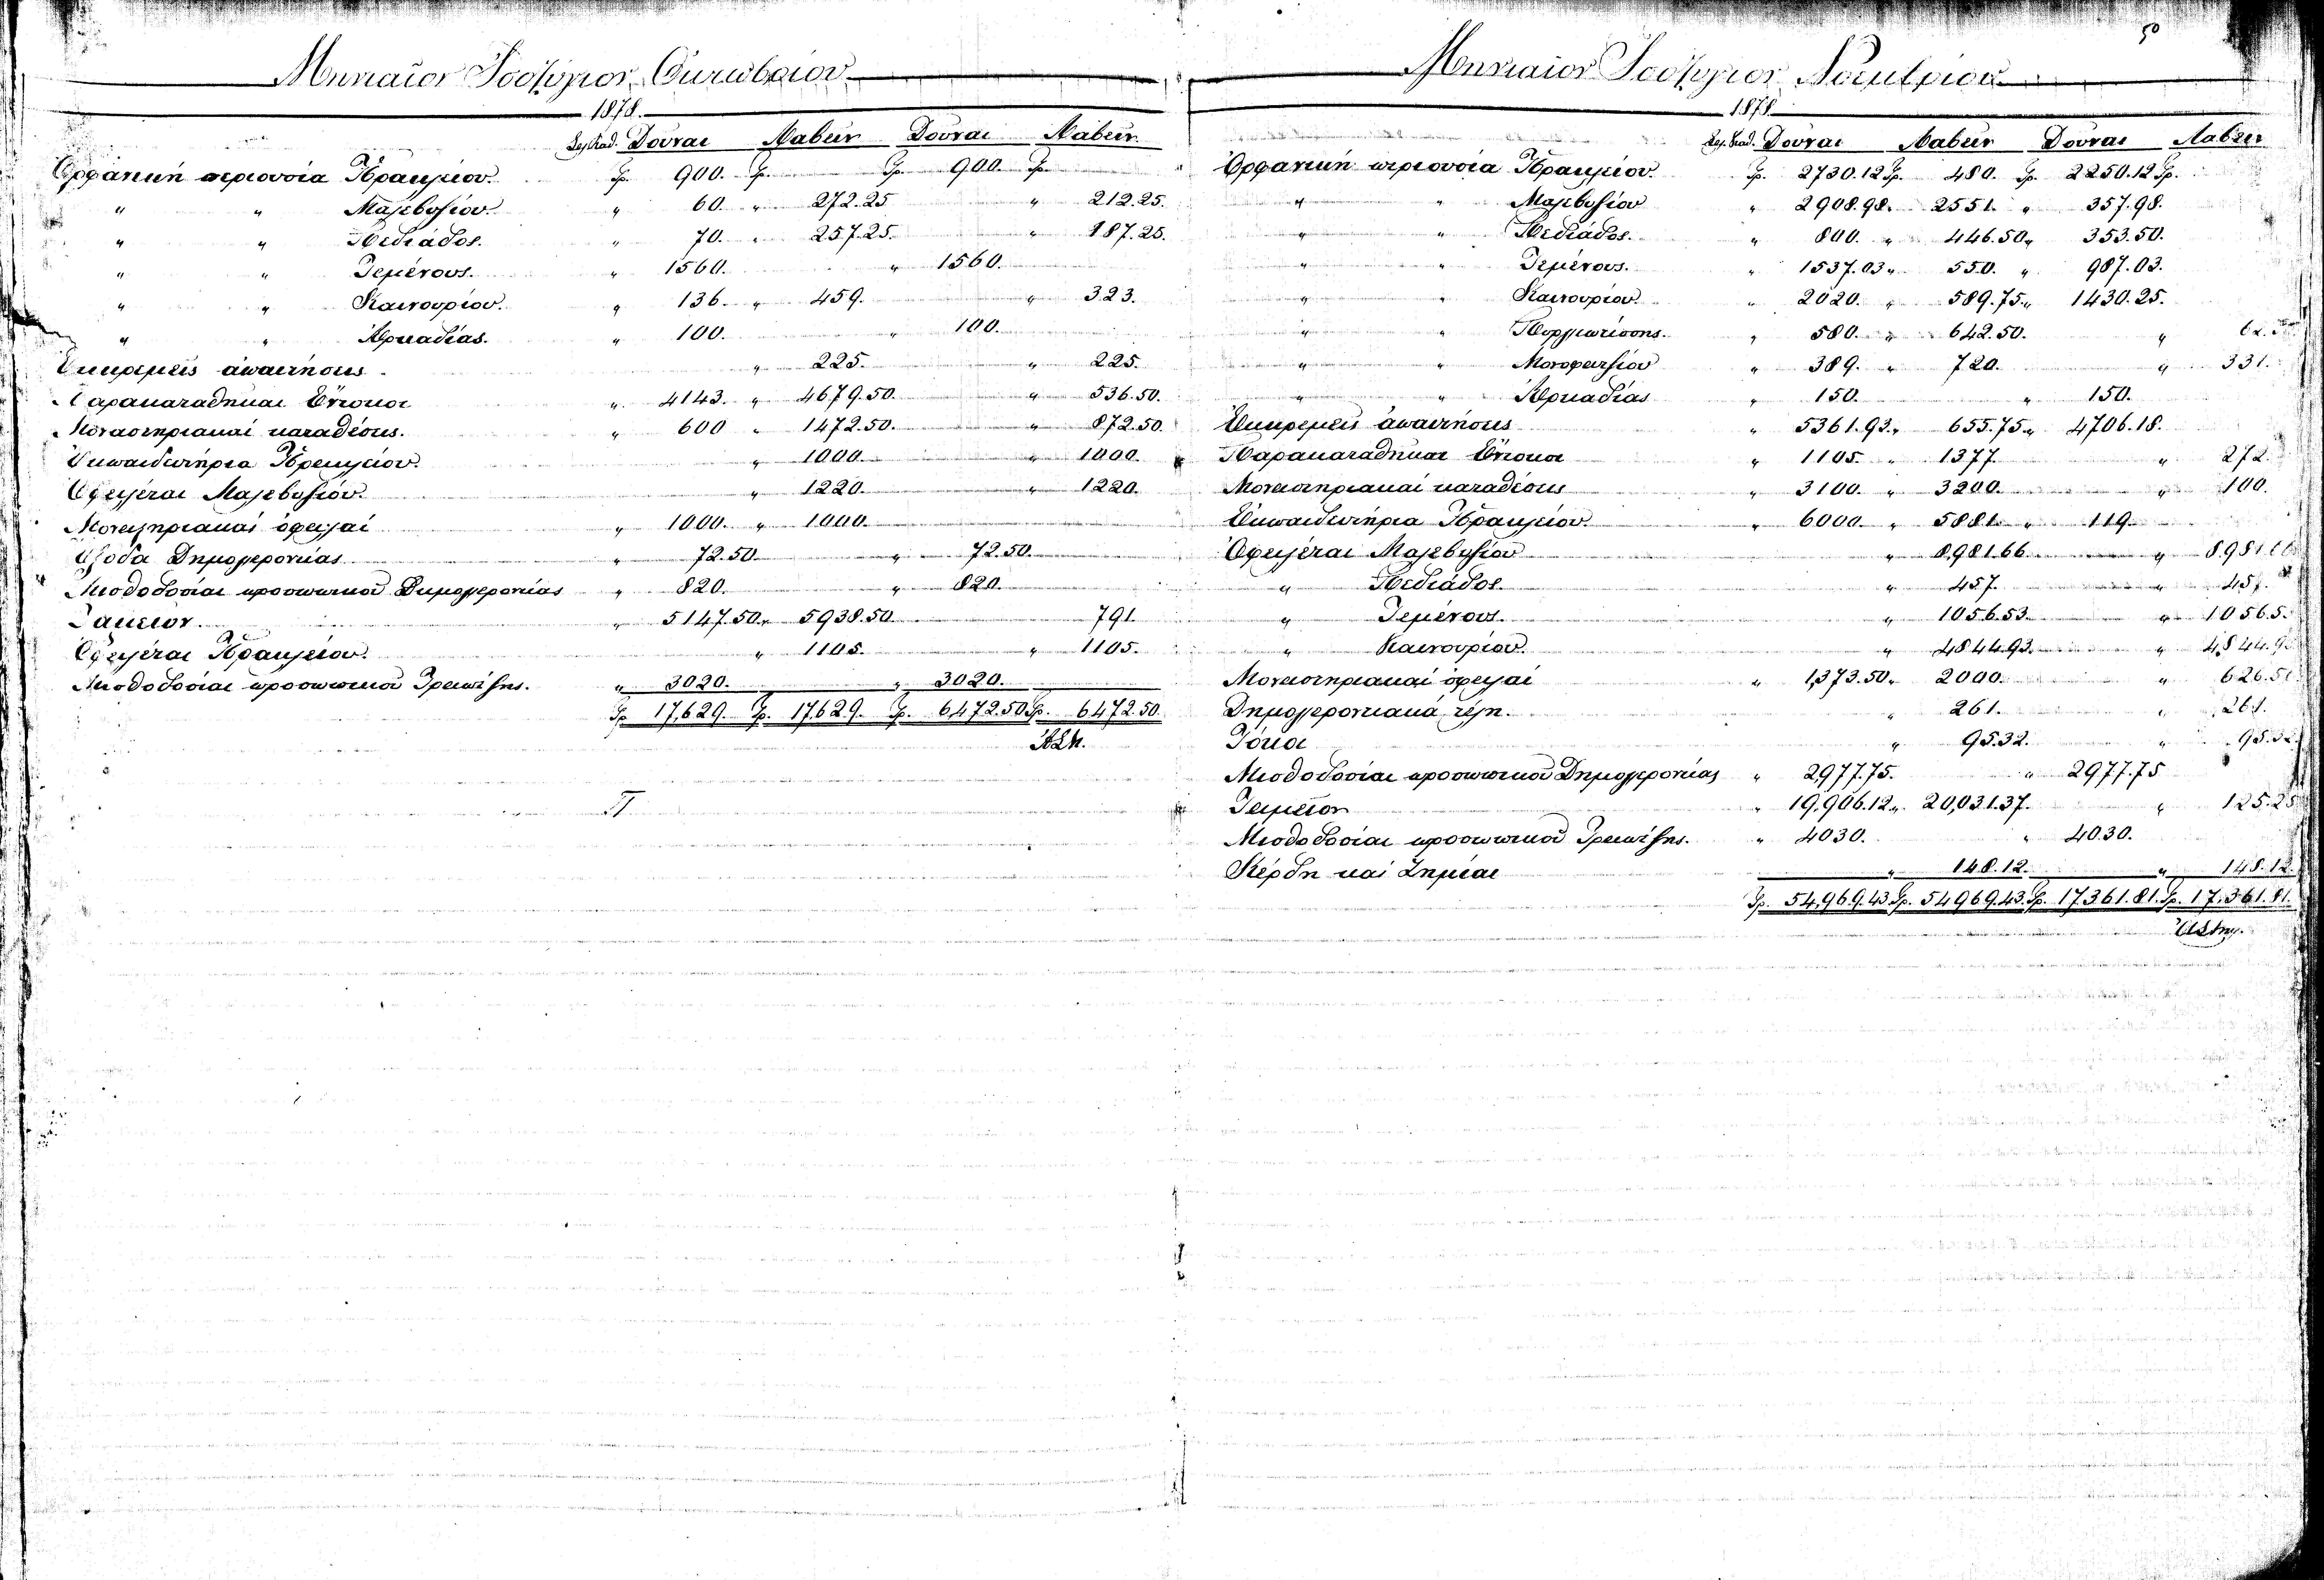 Μηνιαῖον Ἰσοζύγιον Ὀκτωβρίου
1878.
Δοῦναι Λαβεῖν Δοῦναι Λαβεῖν
Ὀρφανική περιουσία Ἡρακλείου. Γρ. 900. Γρ. Γρ. 900. Γρ.
" " Μαλεβυζίου. " 60. " 272.25 " 212.25.
" " Πεδιάδος. " 70. " 257.25. " 187.25.
" " Τεμένους. " 1560. " 1560.
" " Καινουρίου. " 136. " 459. " 323.
" " Ἀρκαδίας. " 100. " 100.
Ἐκκρεμεῖς ἀπαιτήσεις " 225. " 225.
Παρακαταθῆκαι Ἔντοκοι " 4143. " 4679.50. " 536.50.
Μοναστηριακαί καταθέσεις. " 600 " 1472.50. " 872.50.
Ἐκπαιδευτήρια Ἡρακλείου. " 1000. " 1000.
Ὀφειλέται Μαλεβυζίου. " 1220. " 1220.
Μοναστηριακαί ὀφειλαί " 1000. " 1000.
Ἔξοδα Δημογεροντίας " 72.50. " 72.50.
Μισθοδοσίαι προσωπικοῦ Δημογεροντίας " 820. " 820.
Ταμεῖον. " 5147.50. " 5938.50. 791.
Ὀφειλέται Ἡρακλείου. " 1105. " 1105.
Μισθοδοσίαι προσωπικοῦ Τραπέζης. " 3020. " 3020.
Γρ. 17,629. Γρ. 17,629. Γρ. 6472.50 Γρ. 6472.50.
50
Μηνιαῖον Ἰσοζύγιον Νοεμβρίου
1878
Δοῦναι Λαβεῖν Δοῦναι Λαβεῖν
Ὀρφανική περιουσία Ἡρακλείου Γρ. 2730.12 Γρ. 480. Γρ. 2250.12 Γρ.
" " Μαλεβυζίου " 2908.98. 2551. " 357.98.
" " Πεδιάδος. " 800. " 446.50 " 353.50.
" " Τεμένους. " 1537.03 " 550. " 987.03.
" " Καινουρίου " 2020. " 589.75 " 1430.25.
" " Πυργιωτίσσης. " 580. " 642.50. "
" " Μονοφατσίου " 389. " 720. " 331.
" " Ἀρκαδίας " 150. " 150.
Ἐκκρεμεῖς ἀπαιτήσεις " 5361.93. " 655.75 " 4706.18.
Παρακαταθῆκαι Ἔντοκοι " 1105. " 1377. " 272.
Μοναστηριακαί καταθέσεις " 3100. " 3200. " 100.
Ἐκπαιδευτήρια Ἡρακλείου " 6000. " 5881. " 119.
Ὀφειλέται Μαλεβυζίου " 8,981.66. " 8,981.66
" Πεδιάδος. " 457. " 457.
" Τεμένους. " 1056.53. " 1056.5
" Καινουρίου. " 4844.93. " 4,844.9
Μοναστηριακαί ὀφειλαί " 1,373.50. " 2000. " 626.50
Δημογεροντιακά τέλη. " 261. " 261.
Τόκοι " 95.32. " 95.32
Μισθοδοσίαι προσωπικοῦ Δημογεροντίας " 2,977.75. " 2977.75
Ταμεῖον " 19,906.12. " 20,031.37. " 125.25
Μισθοδοσίαι προσωπικοῦ Τραπέζης. " 4030. " 4030.
Κέρδη καί Ζημίαι " 148.12. " 148.12.
Γρ. 54,969.43 Γρ. 54969.43. Γρ. 17361.81. Γρ. 17,361.81.